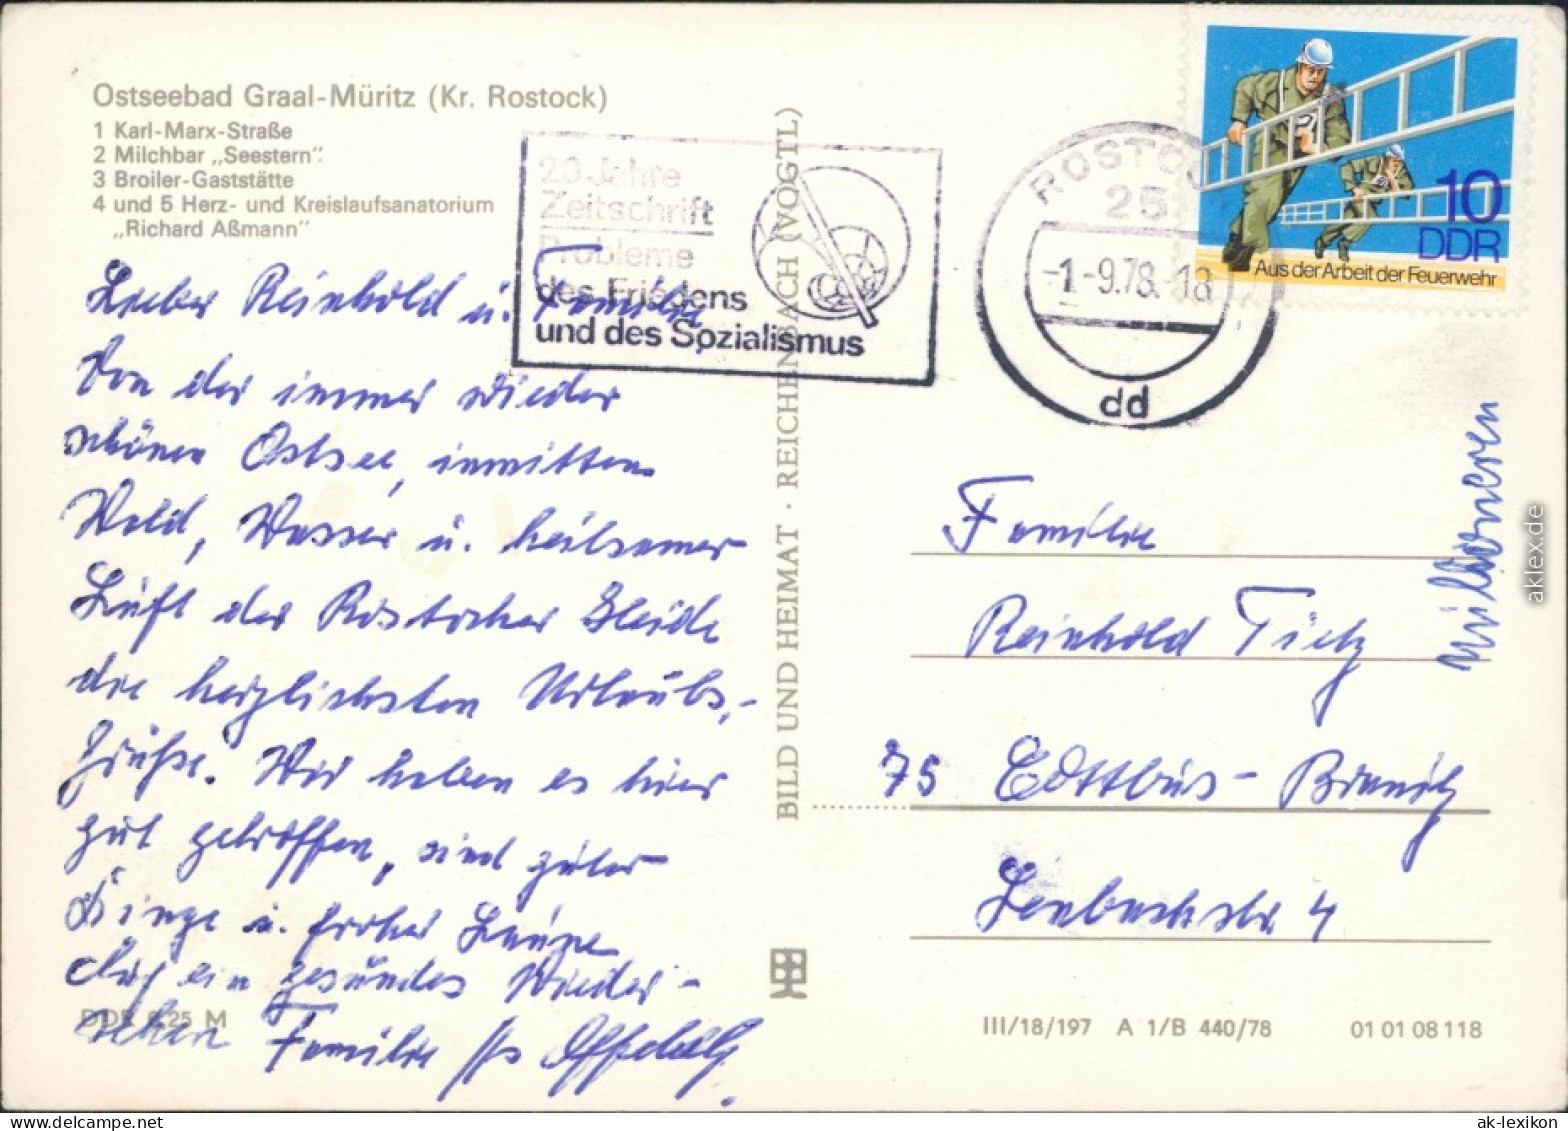 Ostseebad Graal-Müritz (Kr. Rostock)
1 Karl-Marx-Straße
2 Milchbar „Seestern“
3 Broiler-Gaststätte
4 und 5 Herz- und Kreislaufsanatorium
„Richard Aßmann“
20 Jahre
Zeitschrift
Probleme
des Friedens
und des Sozialismus
ROSTOC
25
-1.-9.78.-18
dd
10
DDR
Aus der Arbeit der Feuerwehr
Lieber Reinhold u. Familie,
Von der immer wieder
schönen Ostsee, inmitten
Wald, Wasser u. heilsamer
Luft der Rostocker Heide
die herzlichsten Urlaubs-
grüße. Wir haben es hier
gut getroffen, sind guter
Dinge u. froher Laune
Auf ein gesundes Wieder-
sehen Familie
DDR 0,25 M
BILD UND HEIMAT · REICHENBACH (VOGTL)
Familie
Reinhold Tietz
75 Cottbus- Branitz
Leubachstr. 4
III/18/197 A 1/B 440/78 01 01 08 118
aklex.de
ak-lexikon